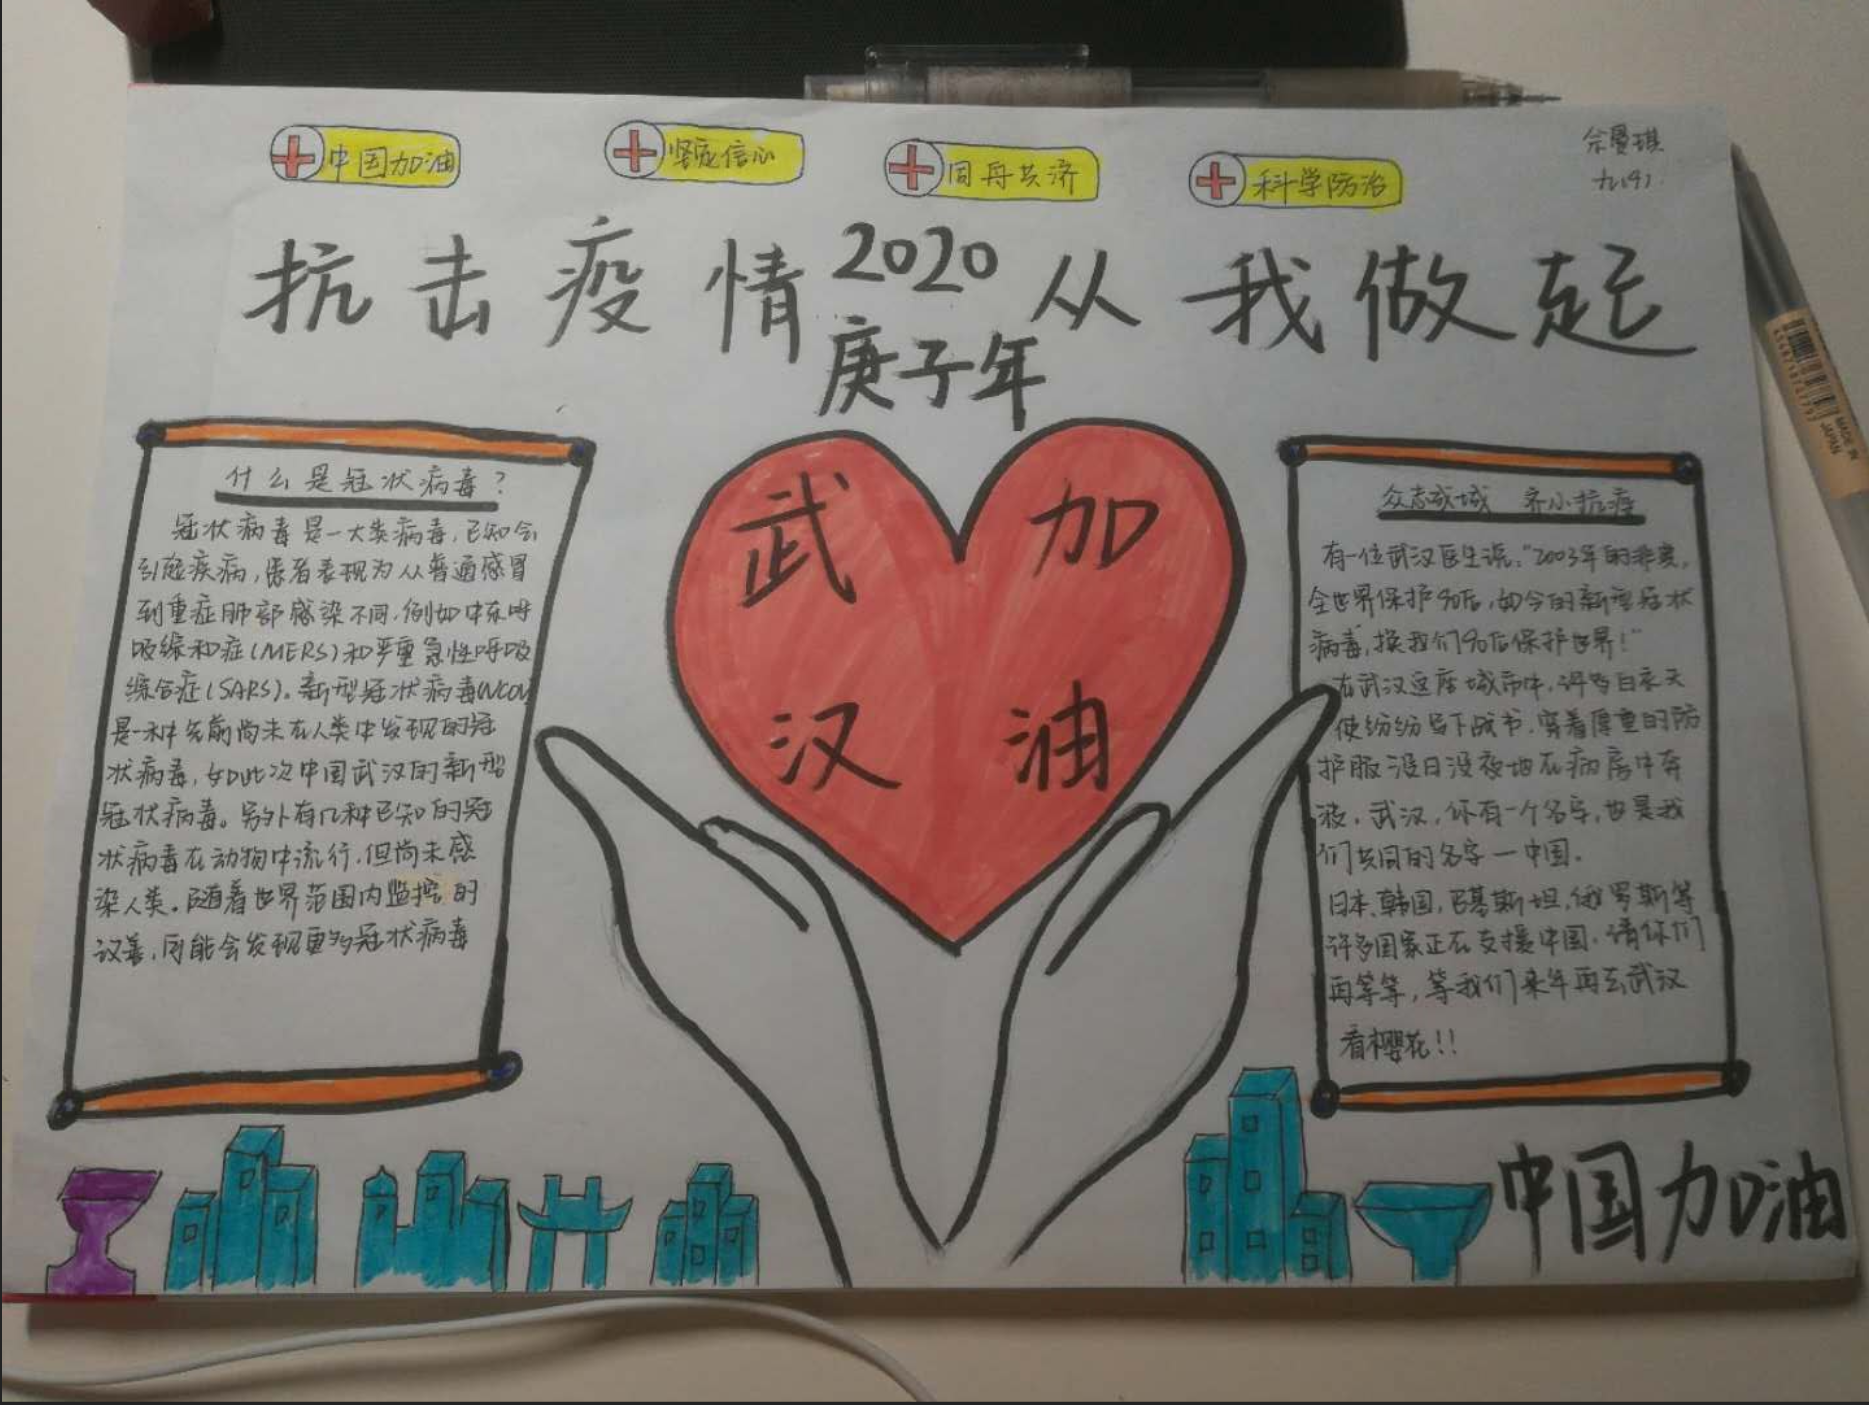 中国加油
坚定信心
同舟共济
科学防治
九(4)
抗击疫情 2020 从我做起
庚子年
武 加
汉 油
什么是冠状病毒?
冠状病毒是一大类病毒,已知会
引起疾病,患者表现为从普通感冒
到重症肺部感染不同,例如中东呼
吸综和症(MERS)和严重急性呼吸
综合症(SARS)。新型冠状病毒
是一种先前尚未在人类中发现的冠
状病毒,如此次中国武汉的新型
冠状病毒。另外有几种已知的冠
状病毒在动物中流行,但尚未感
染人类。随着世界范围内监控的
改善,可能会发现更多冠状病毒
众志成城 齐心抗疫
有一位武汉医生说:“2003年的非典,
全世界保护90后,如今的新型冠状
病毒,换我们90后保护世界!”
在武汉这座城市中,许多白衣天
使纷纷写下战书,穿着厚重的防
护服没日没夜地在病房中奔
波。武汉,你有一个名字,也是我
们共同的名字—中国。
日本、韩国,巴基斯坦,俄罗斯等
许多国家正在支援中国。请你们
再等等,等我们来年再去武汉
看樱花!!
中国加油